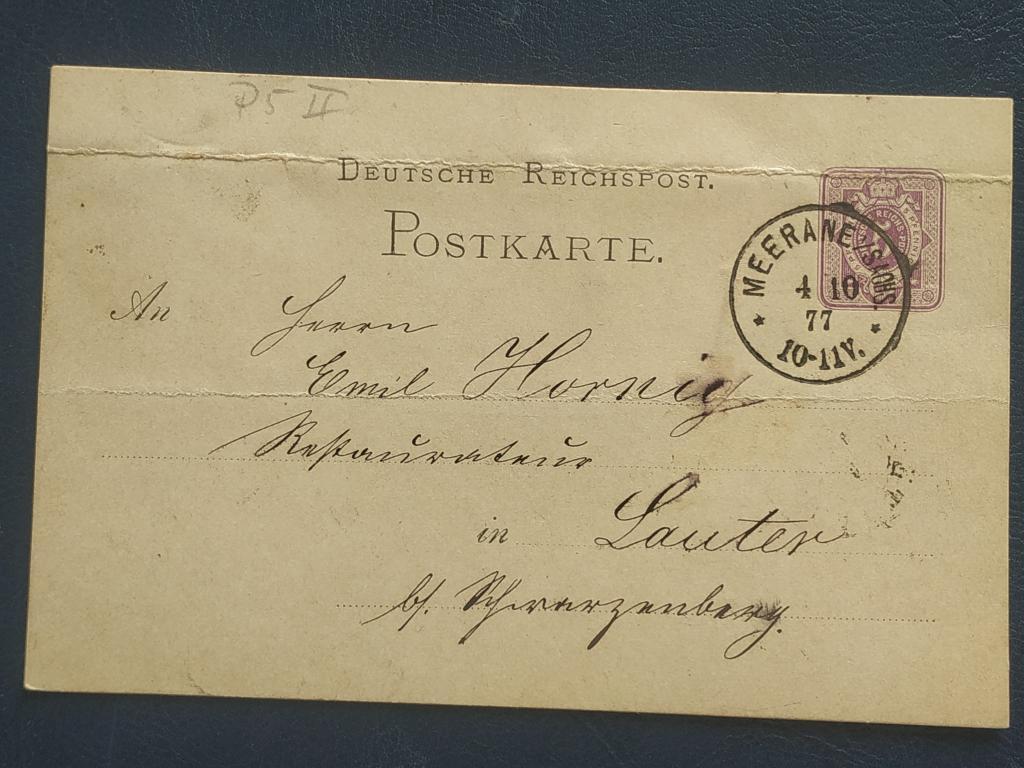 P5 II
DEUTSCHE REICHSPOST.
POSTKARTE.
MEERANE/SACHS.
4 10
77
10-11V.
An Herrn
Emil Hornig
Restaurateur
in Lauter
b/. Schwarzenberg.